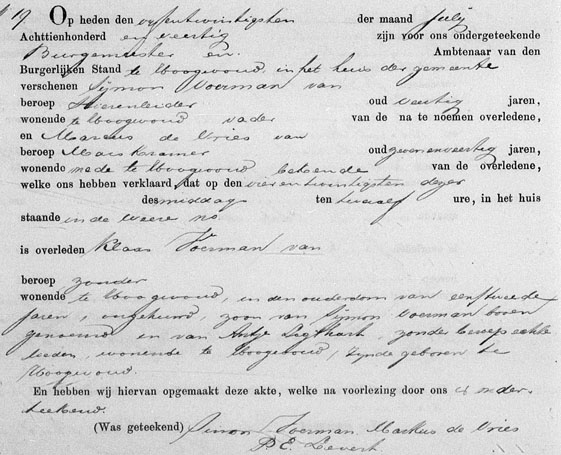 N 19. Op heden den vyfentwintigsten der maand July
Achttienhonderd en veertig zijn voor ons ondergeteekende
Burgemeester en Ambtenaar van den
Burgerlijken Stand te Hoogwoud in het huis der gemeente
verschenen Sijmon Voerman van
beroep oud veertig jaren,
wonende te Hoogwoud vader van de na te noemen overledene,
en Marcus de Vries van
beroep Kramer oud jaren,
wonende mede te Hoogwoud bekende van de overledene,
welke ons hebben verklaard, dat op den vierentwintigsten dezer
des middags ten twaalf ure, in het huis
staande in de Weere no
is overleden Klaas Voerman van
beroep zonder
wonende te Hoogwoud, in den ouderdom van een tweede
jaren, ongehuwd, zoon van Sijmon Voerman boven
genoemd en van Antje Ligthart, zonder beroep echte
lieden, wonende te Hoogwoud, zynde geboren te
Hoogwoud.
En hebben wij hiervan opgemaakt deze akte, welke na voorlezing door ons is onder
teekend.
(Was geteekend) Simon Voerman Markus de Vries
P. E. Levert